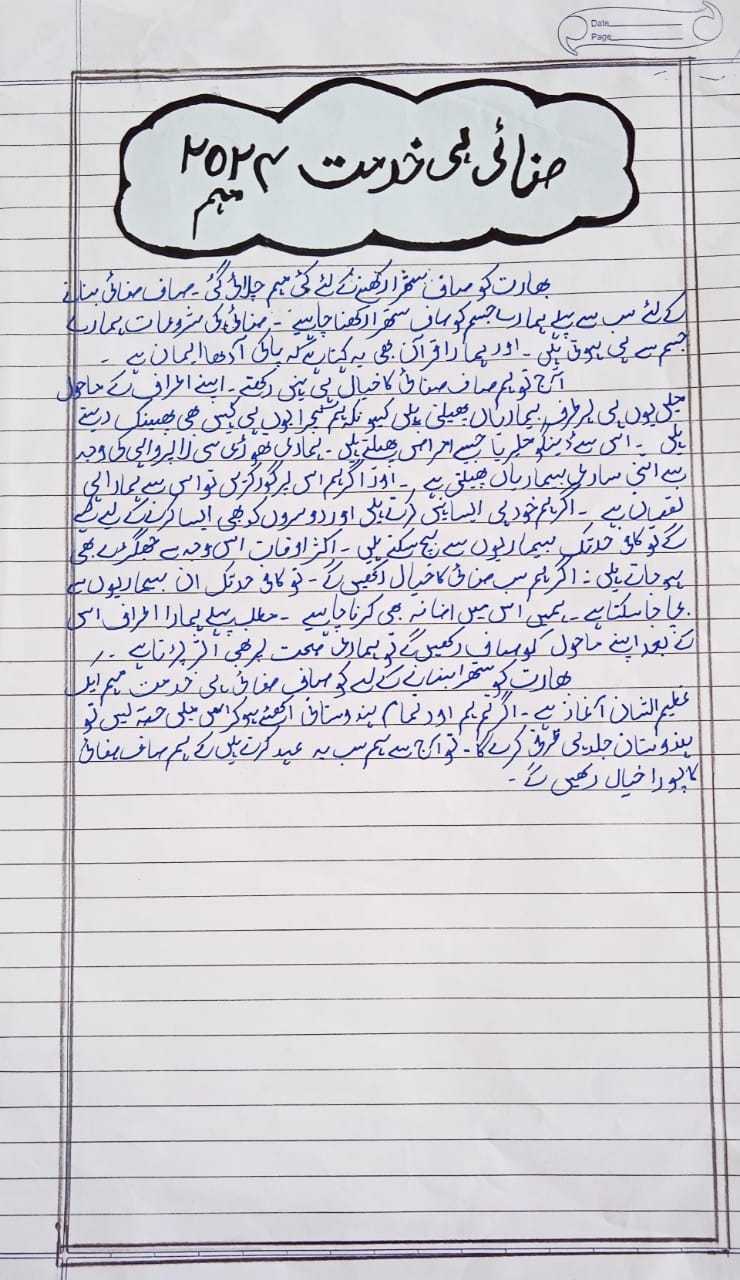 Date
Page
صفائی ہی خدمت ۲۰۲۴
مہم
بھارت کو صاف ستھرا رکھنے کے لئے کئی مہم چلائی گئی۔ صاف صفائی بنانے
کے لئے سب سے پہلے ہمارے جسم کو صاف ستھرا رکھنا چاہیے۔ صفائی کی شروعات ہمارے
جسم سے ہی ہوتی ہیں۔ اور ہمارا قرآن بھی یہ کہتا ہے کہ پاکی آدھا ایمان ہے۔
آج تو ہم صاف صفائی کا خیال ہی نہیں رکھتے۔ اپنے اطراف کے ماحول
میں یوں ہی ہر طرف بیماریاں پھیلتی ہیں کیونکہ ہم کچرا یوں ہی کہیں بھی پھینک دیتے
ہیں۔ اس سے ڈینگو ملیریا جیسے امراض پھیلتے ہیں۔ ہماری تھوڑی سی لاپرواہی کی وجہ
سے اتنی ساری بیماریاں پھیلتی ہے۔ اور اگر ہم اس پر گور کریں تو اس سے ہمارا ہی
نقصان ہے۔ اگر ہم خود ہی ایسا نہیں کرتے ہیں اور دوسروں کو بھی ایسا کرنے کے لیے
گے تو کافی حد تک بیماریوں سے بچ سکتے ہیں۔ اکثر اوقات اس وجہ سے جھگڑے بھی
ہو جاتے ہیں۔ اگر ہم سب صفائی کا خیال رکھیں گے۔ تو کافی حد تک ان بیماریوں سے
بچا جا سکتا ہے۔ ہمیں اس میں اضافہ بھی کرنا چاہیے۔ مطلب پہلے ہمارا اطراف اس
کے بعد اپنے ماحول کو صاف رکھیں گے تو ہماری صحت پر بھی اثر پڑتا ہے۔
بھارت کو ستھرا بنانے کے لیے کو صاف صفائی ہی خدمت مہم ایک
عظیم الشان آغاز ہے۔ اگر تم ہم اور تمام ہندوستانی اکھٹے ہو کر اس میں حصہ لیں تو
ہندوستان جلد ہی ترقی کرے گا۔ تو آج سے ہم سب یہ عہد کرتے ہیں کے ہم صاف صفائی
کا پورا خیال رکھیں گے۔